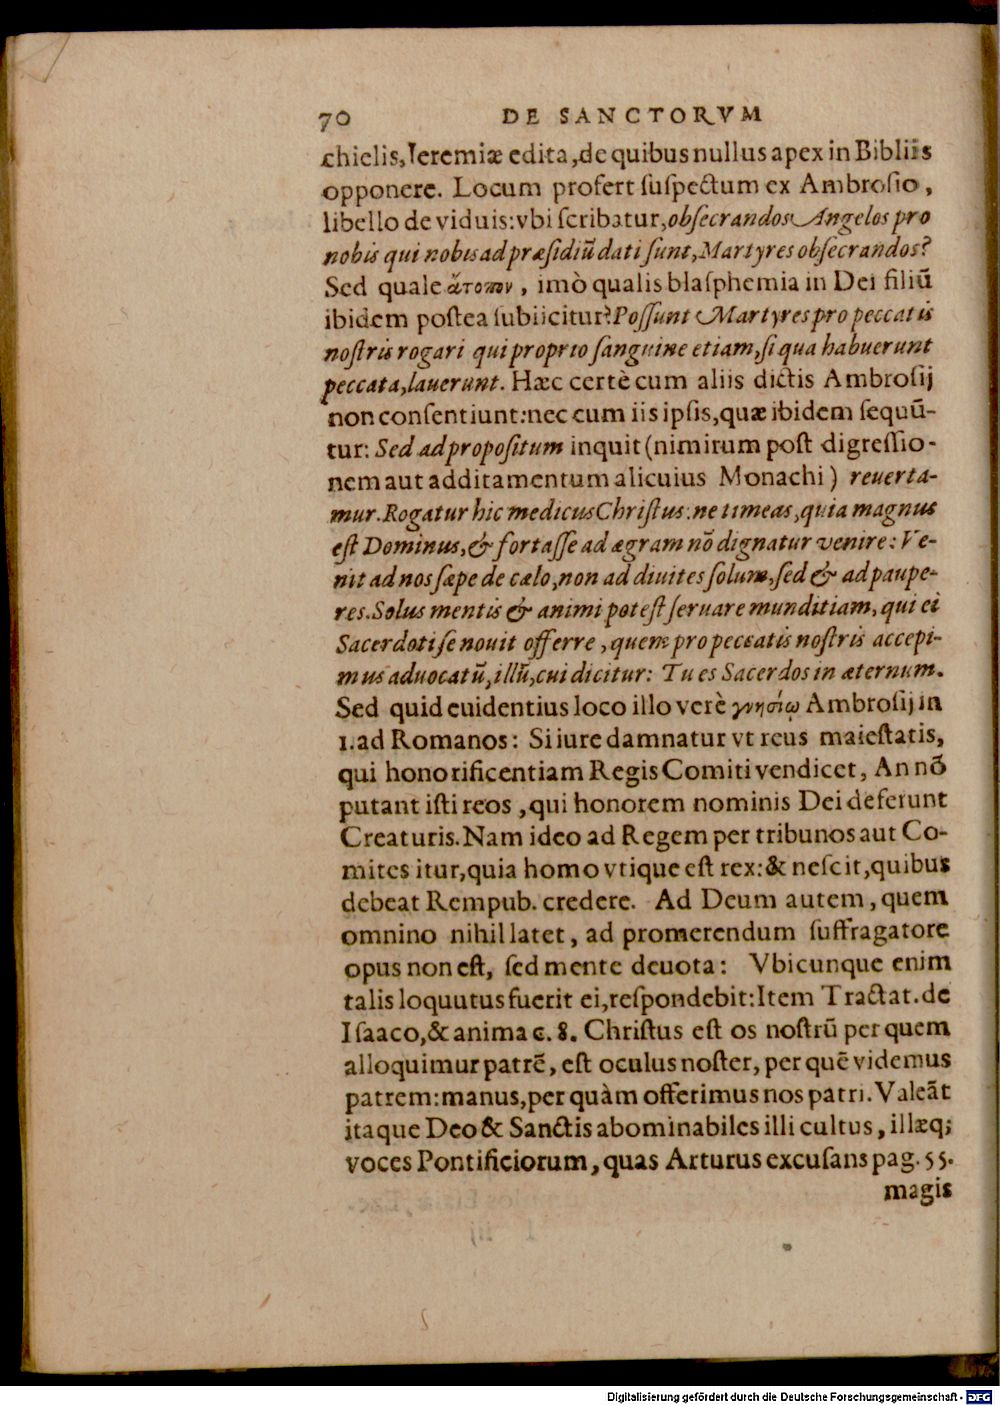 70 DE SANCTORVM
chielis, Ieremiæ edita, de quibus nullus apex in Bibliis
opponere. Locum profert ſuſpectum ex Ambroſio,
libello de viduis: vbi ſcribatur, obſecrandos Angelos pro
nobis qui nobis ad præſidiũ dati ſunt, Martyres obſecrandos?
Sed quale ἄτοπον, imò qualis blaſphemia in Dei filiũ
ibidem poſtea ſubiicitur? Poſſunt Martyres pro peccatis
noſtris rogari qui proprio ſanguine etiam, ſi qua habuerunt
peccata, lauerunt. Hæc certè cum aliis dictis Ambroſij
non conſentiunt: nec cum iis ipſis, quæ ibidem ſequũ-
tur: Sed ad propoſitum inquit (nimirum poſt digreſſio-
nem aut additamentum alicuius Monachi) reuerta-
mur. Rogatur hic medicus Chriſtus: ne timeas, quia magnus
eſt Dominus, & fortaſſe ad ægram nõ dignatur venire: Ve-
nit ad nos ſæpe de cælo, non ad diuites ſolum, ſed & ad paupe-
res. Solus mentis & animi poteſt ſeruare munditiam, qui ei
Sacerdoti ſe nouit offerre, quem pro peccatis noſtris accepi-
mus aduocatũ, illũ, cui dicitur: Tu es Sacerdos in æternum.
Sed quid euidentius loco illo verè γνησίῳ Ambroſij in
1. ad Romanos: Si iure damnatur vt reus maieſtatis,
qui honorificentiam Regis Comiti vendicet, An nõ
putant iſti reos, qui honorem nominis Dei deferunt
Creaturis. Nam ideo ad Regem per tribunos aut Co-
mites itur, quia homo vtique eſt rex: & neſcit, quibus
debeat Rempub. credere. Ad Deum autem, quem
omnino nihil latet, ad promerendum ſuffragatore
opus non eſt, ſed mente deuota: Vbicunque enim
talis loquutus fuerit ei, reſpondebit: Item Tractat. de
Iſaaco, & anima c. 8. Chriſtus eſt os noſtrũ per quem
alloquimur patrẽ, eſt oculus noſter, per quẽ videmus
patrem: manus, per quàm offerimus nos patri. Valeãt
itaque Deo & Sanctis abominabiles illi cultus, illæq;
voces Pontificiorum, quas Arturus excuſans pag. 55.
magis
Digitalisierung gefördert durch die Deutsche Forschungsgemeinschaft - DFG